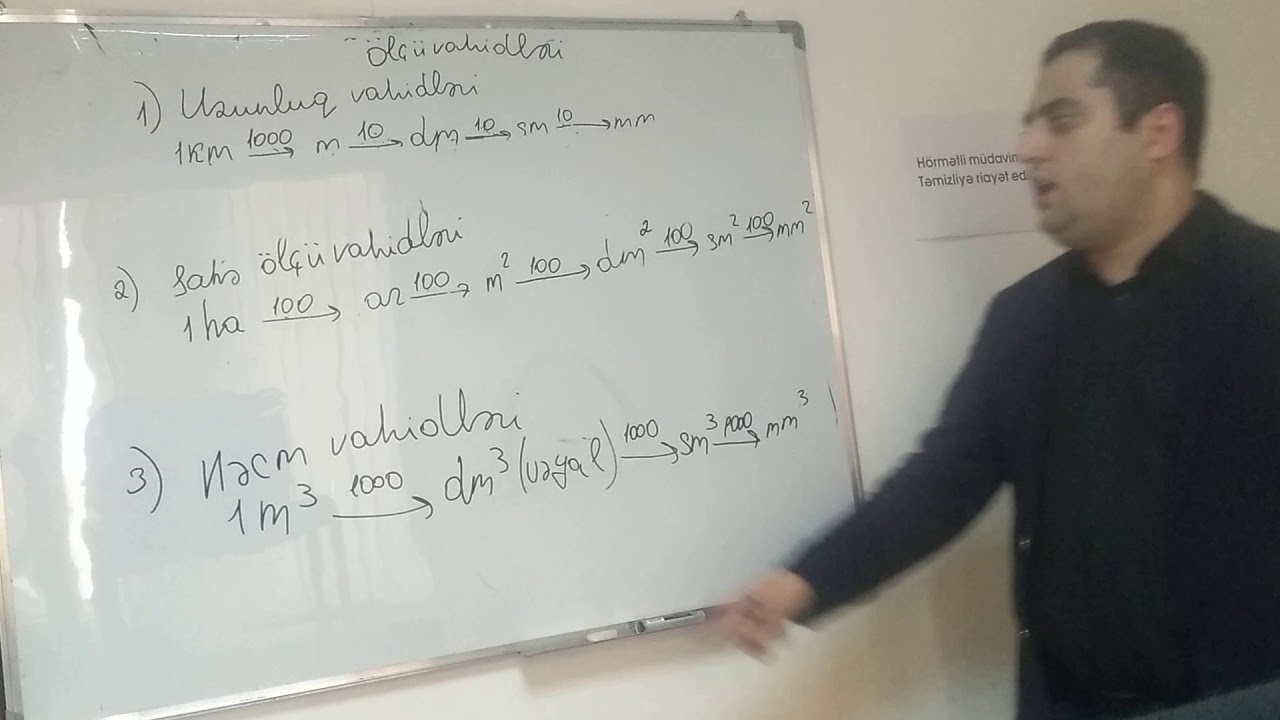 Ölçü vahidləri
1) Uzunluq vahidləri
1km 1000→ m 10→ dm 10→ sm 10→ mm
2) Sahə ölçü vahidləri
1ha 100→ ar 100→ m² 100→ dm² 100→ sm² 100→ mm²
3) Həcm vahidləri
1m³ 1000→ dm³ (və ya l) 1000→ sm³ 1000→ mm³
Hörmətli müdavim
Təmizliyə riayət edi